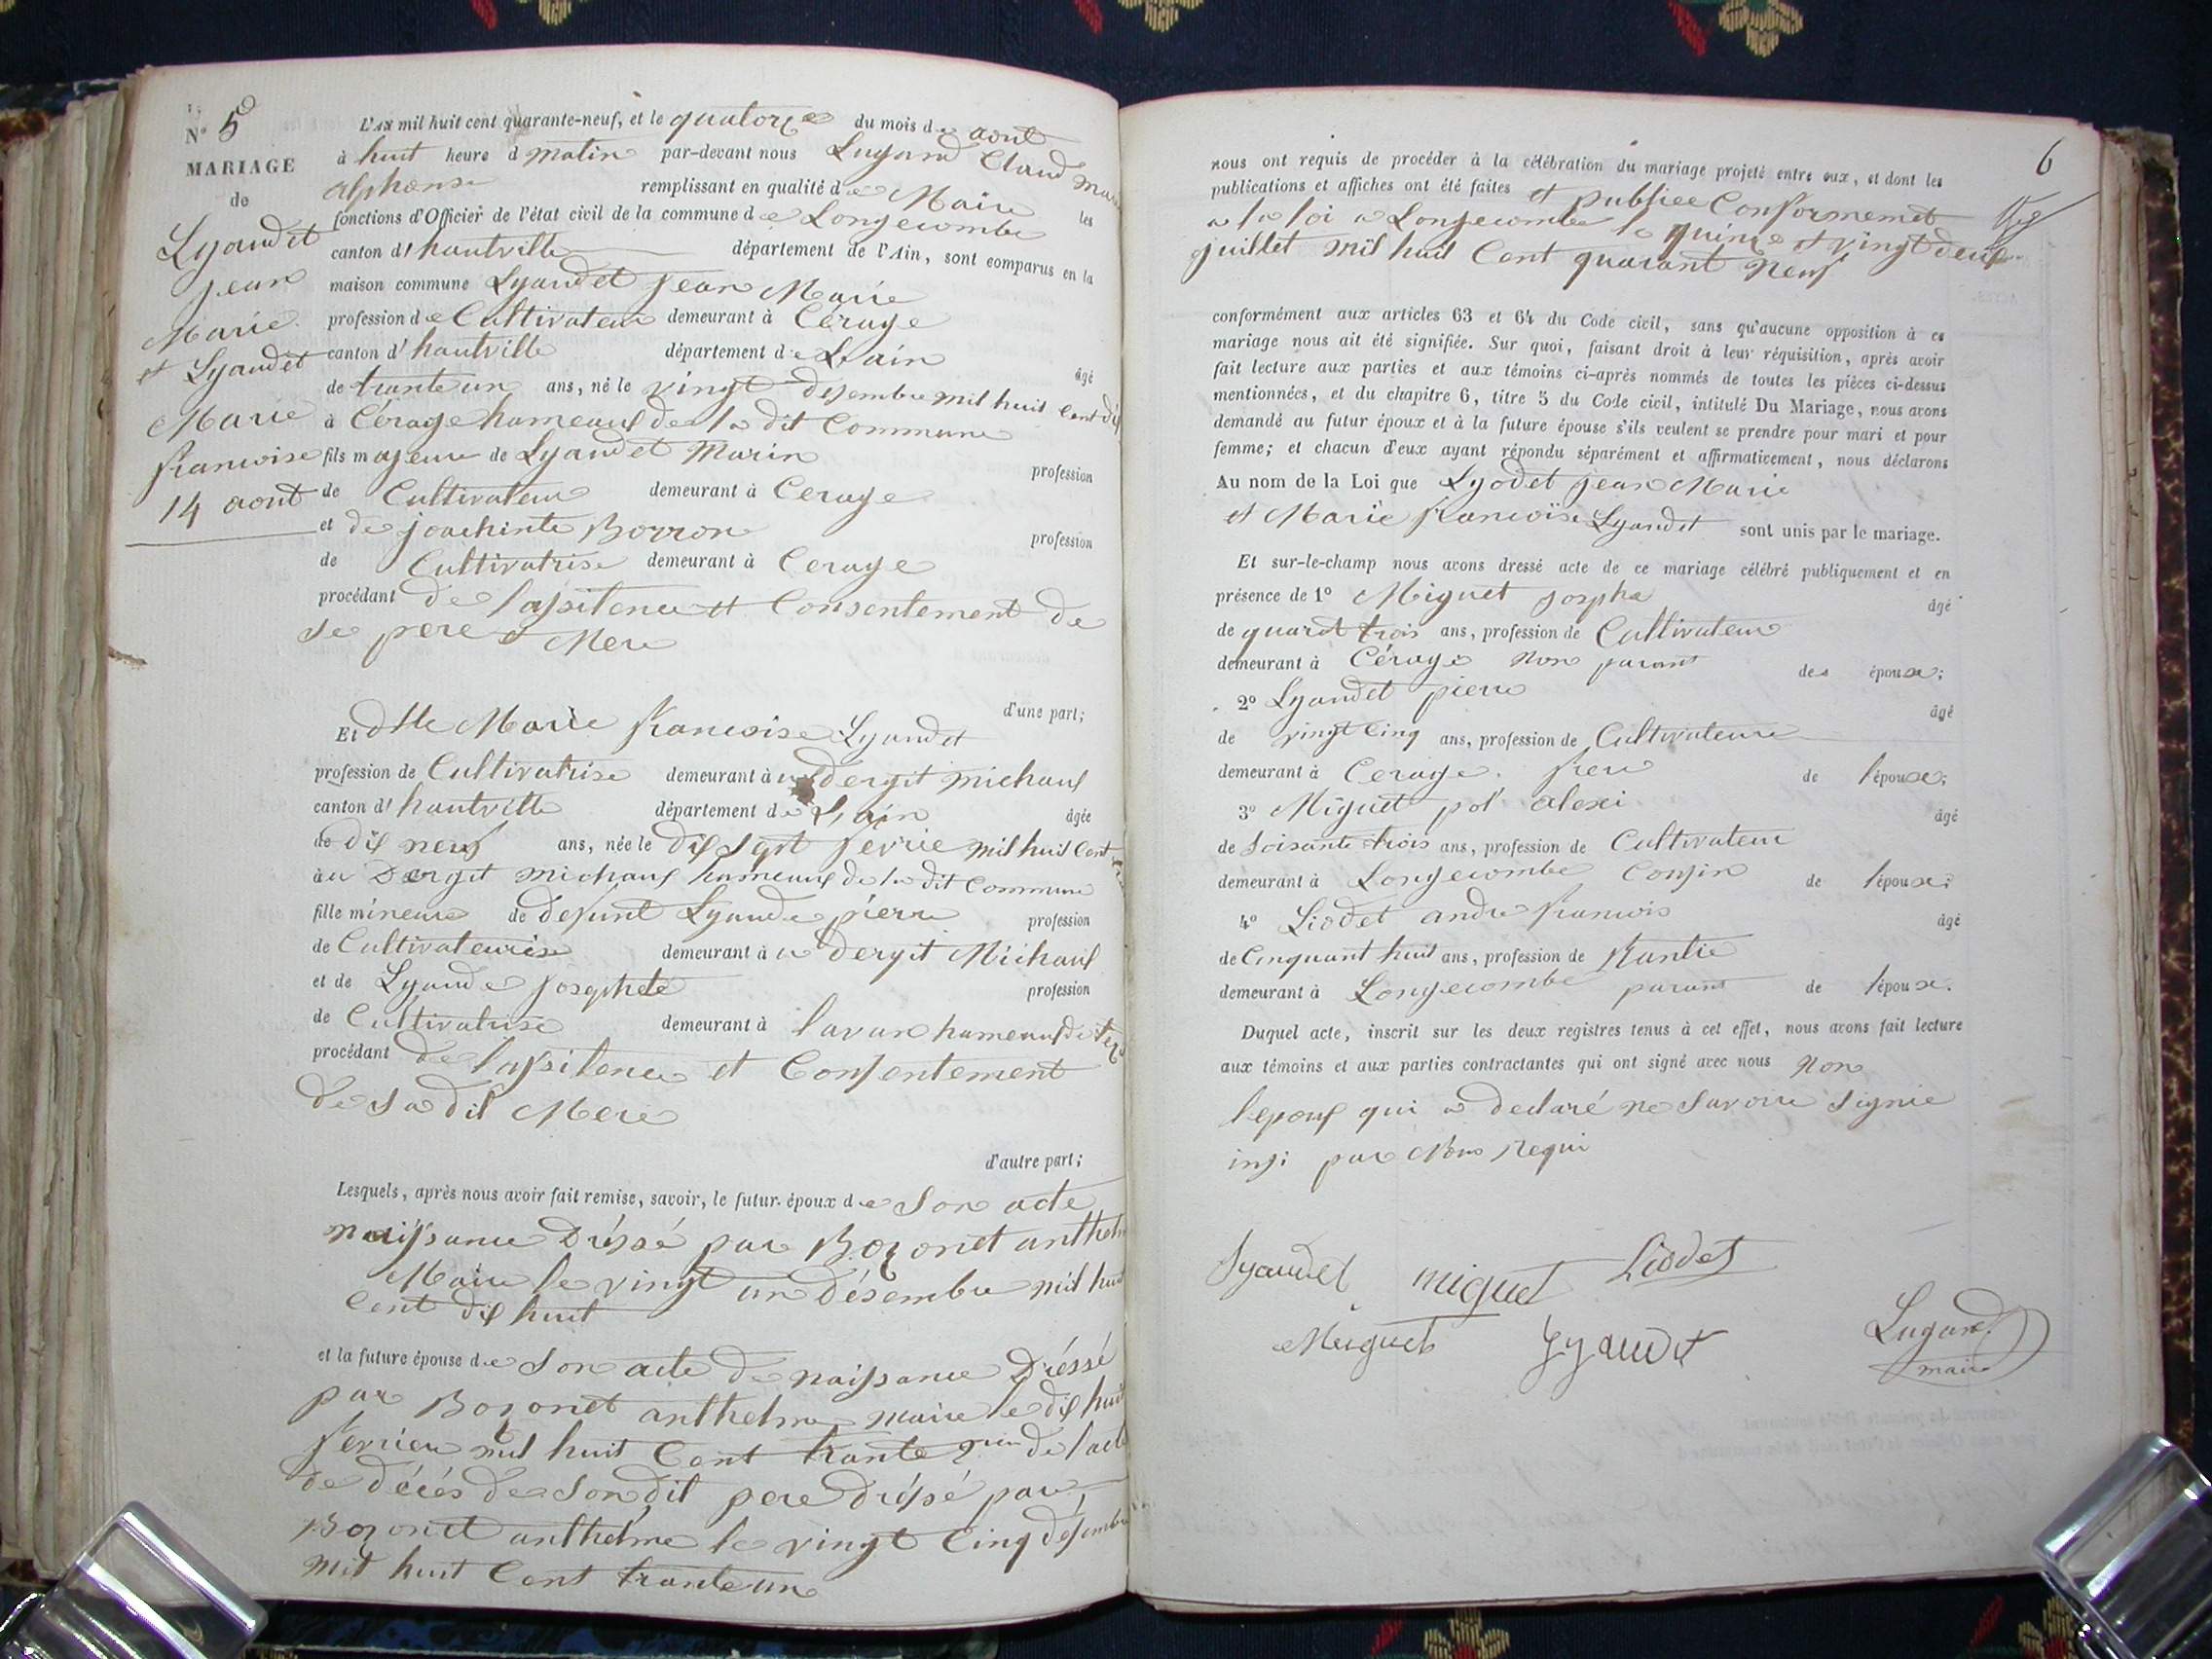 N° 5
MARIAGE
de
Lyaudet
jean
Marie
et Lyaudet
Marie
francoise
14 aout
L'AN mil huit cent quarante-neuf, et le quatorze du mois de aout
à huit heure d matin par-devant nous Lugand Claud Marie
alphonse remplissant en qualité de Maire les
fonctions d'Officier de l'état civil de la commune de Longecombe
canton d' hautville département de l'Ain, sont comparus en la
maison commune Lyaudet jean Marie
profession de Cultivateur demeurant à Cérage
canton d' hautville département de L'ain âgé
de trante un ans, né le vingt desembre mil huit Cent dix
à Cérage hameaux de la dit Commune
fils majeur de Lyaudet Marin profession
de Cultivateur demeurant à Cerage
et de joachinte Borron profession
de Cultivatrise demeurant à Cerage
procédant de l'assitence et Consentement de
se pere et Mere
d'une part;
Et dlle Marie francoise Lyaudet
profession de Cultivatrise demeurant à u dergit michaux
canton d' hautville département de L'ain âgée
de dix neuf ans, née le dix sept fevrie mil huit Cent
àu Dergit michaux hameaux de la dit Commune
fille mineure de defunt Lyaude pierre profession
de Cultivateurise demeurant à u dergit Michaux
et de Lyaude josephete profession
de Cultivatrise demeurant à lavan hameaux de
procédant de l'assitence et Consentement
de sa dit Mere
d'autre part;
Lesquels, après nous avoir fait remise, savoir, le futur époux de son acte
naissance Dréssé par Bozonet anthelme
Maire le vingt un désembre mil huit
Cent dix huit
et la future épouse de son acte de naissance Dréssé
par Bozonet anthelme maire le dix huit
fevrier mil huit Cent trante de l'acte
de décés de son dit pere dréssé par
Bozonet anthelme le vingt Cinq désembre
mil huit Cent trante un
6
nous ont requis de procéder à la célébration du mariage projeté entre eux, et dont les
publications et affiches ont été faites et publiee Conformemet
a la loi a Longecombe le quinze et vingt deux
juillet mil huit Cent quarant neuf
conformément aux articles 63 et 64 du Code civil, sans qu'aucune opposition à ce
mariage nous ait été signifiée. Sur quoi, faisant droit à leur réquisition, après avoir
fait lecture aux parties et aux témoins ci-après nommés de toutes les pièces ci-dessus
mentionnées, et du chapitre 6, titre 5 du Code civil, intitulé Du Mariage, nous avons
demandé au futur époux et à la future épouse s'ils veulent se prendre pour mari et pour
femme; et chacun d'eux ayant répondu séparément et affirmativement, nous déclarons
Au nom de la Loi que Lyodet jean Marie
et Marie francoise Lyaudet sont unis par le mariage.
Et sur-le-champ nous avons dressé acte de ce mariage célébré publiquement et en
présence de 1° Miguet josphe âgé
de quarat trois ans, profession de Cultivateur
demeurant à Cérage non parant des épouse;
2° Lyaudet pierre âgé
de vingt Cinq ans, profession de Cultivateure
demeurant à Cerage frere de l'épouse;
3° Miguet pol alexi âgé
de soisante trois ans, profession de Cultivateur
demeurant à Longecombe Cousin de l'épouse;
4° Liodet andre francois âgé
de Cinquant huit ans, profession de Rantie
demeurant à Longecombe parant de l'épouse.
Duquel acte, inscrit sur les deux registres tenus à cet effet, nous avons fait lecture
aux témoins et aux parties contractantes qui ont signé avec nous Non
l'epoux qui a declaré ne savoire signie
insi par Nous Requi
Lyaudet miguet Liodet
Miguet Lyaudet Lugand
maire